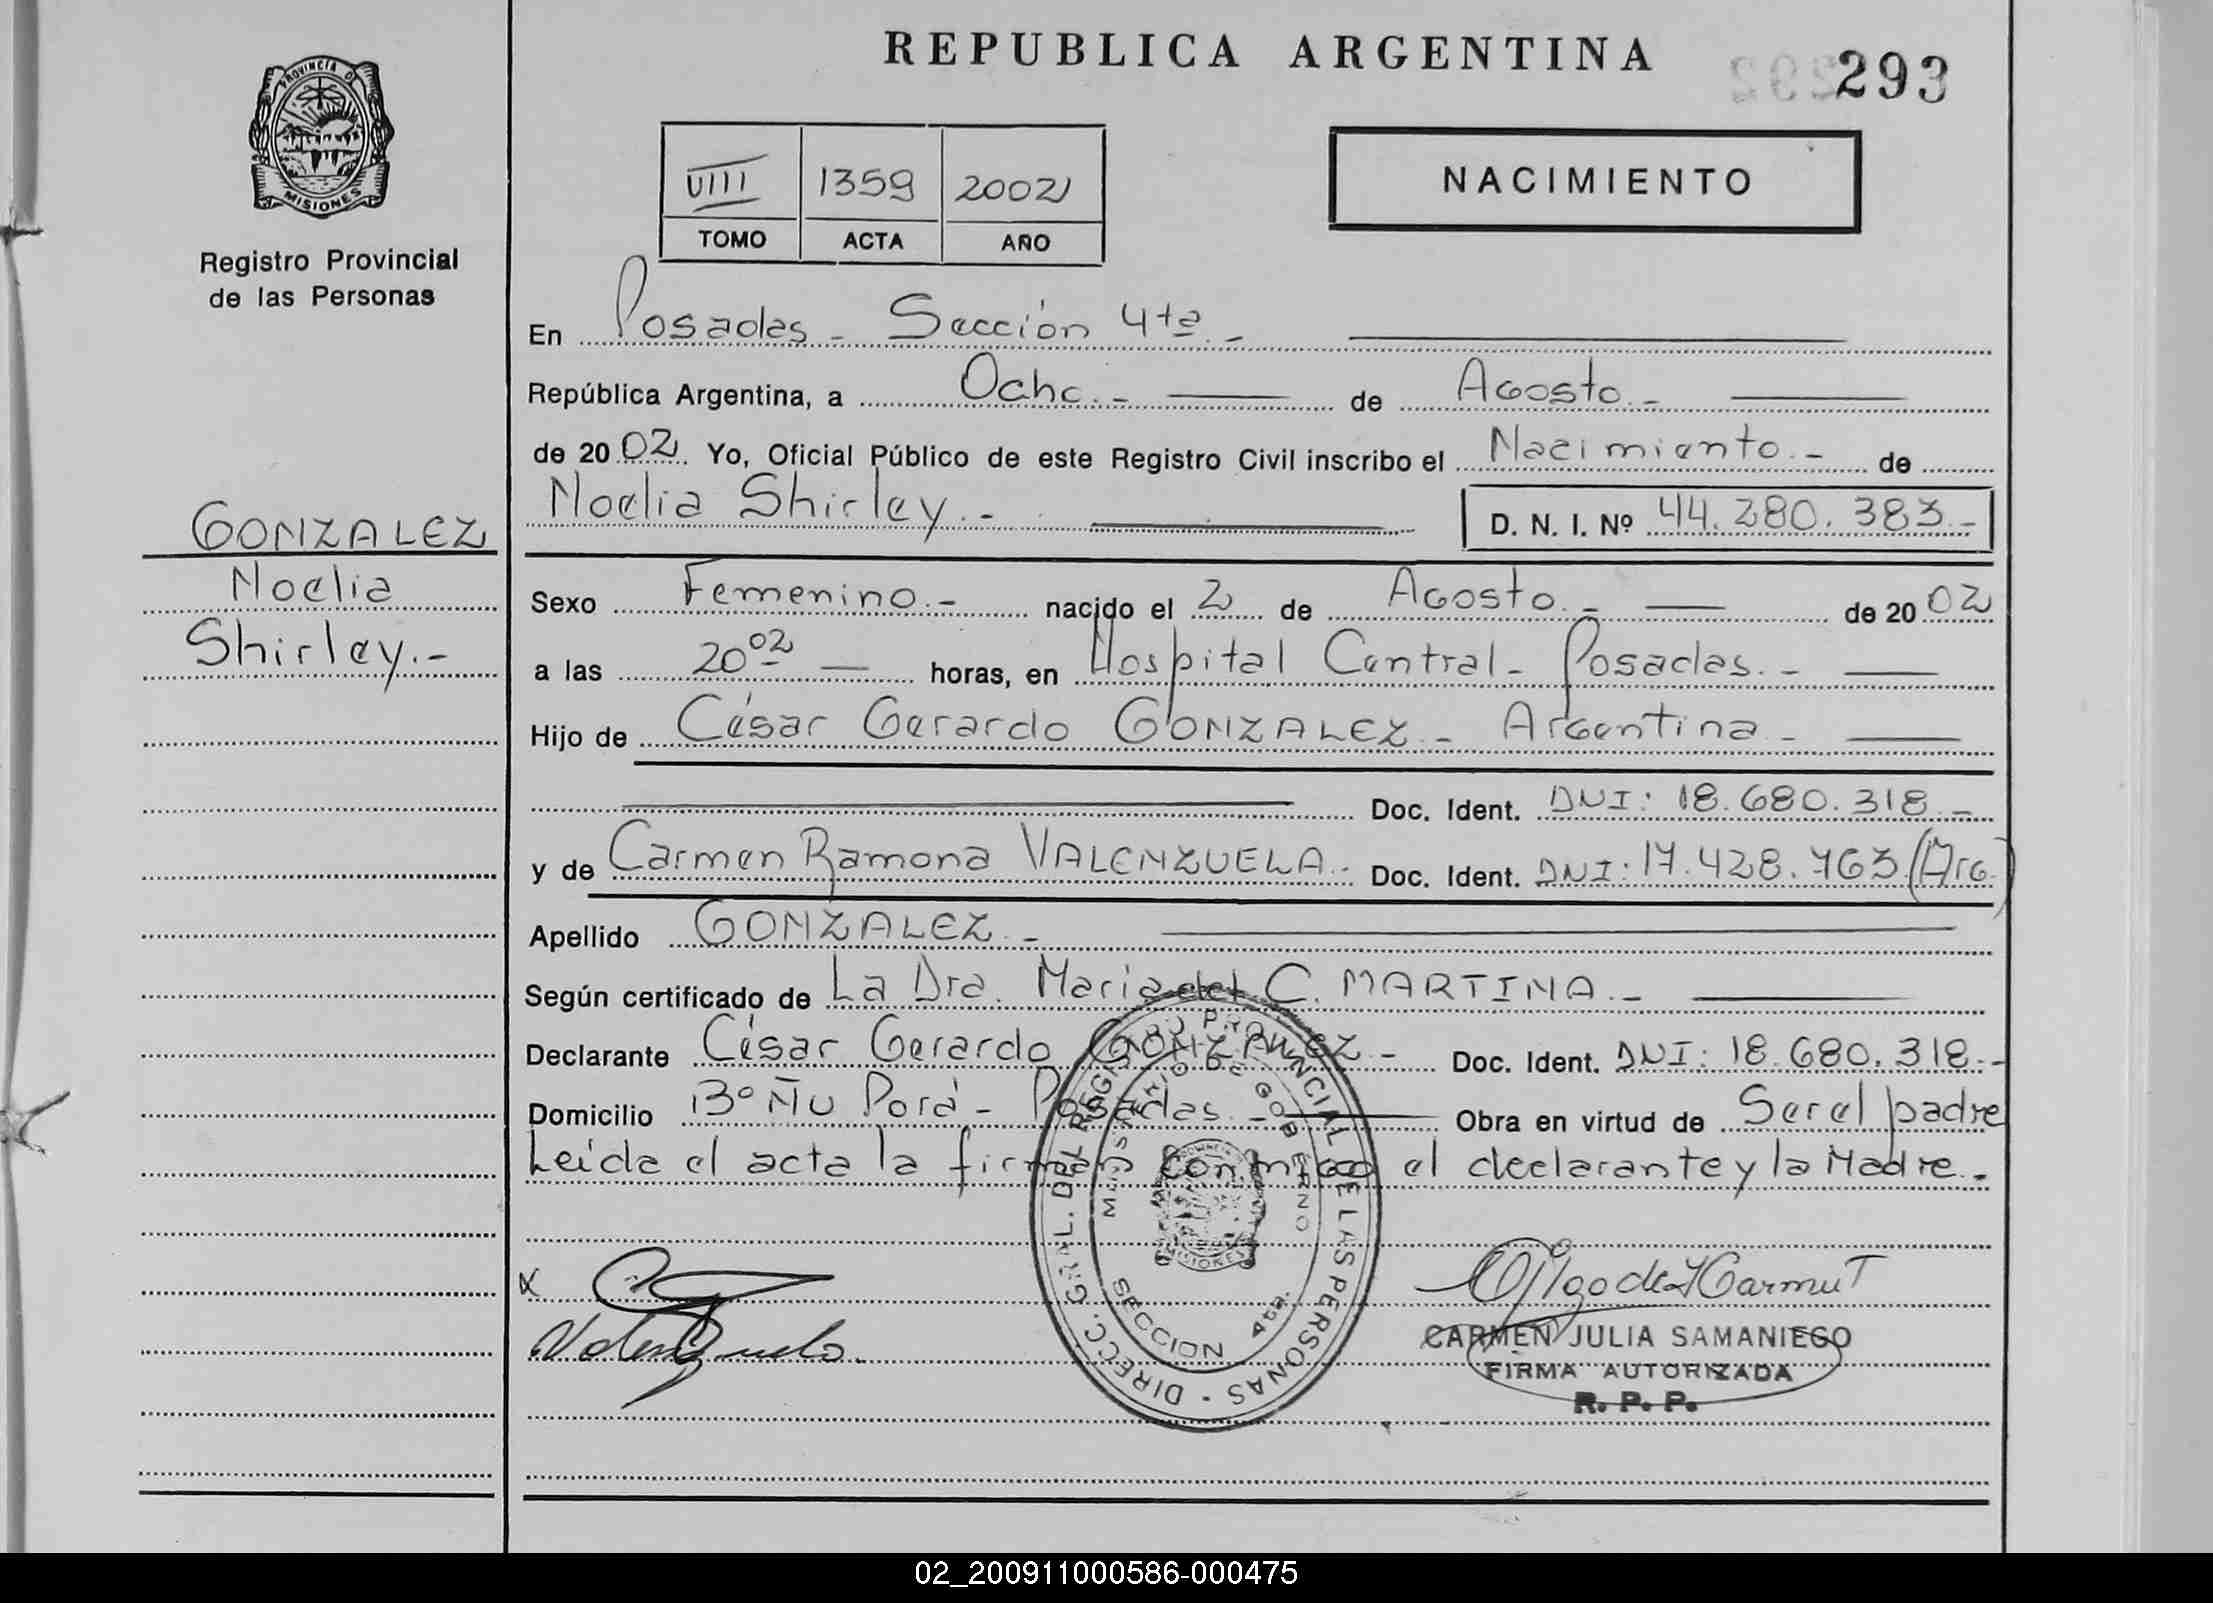 REPUBLICA ARGENTINA
293
PROVINCIA DE
MISIONES
Registro Provincial
de las Personas
VIII 1359 2002
TOMO ACTA AÑO
NACIMIENTO
En Posadas - Sección 4ta. -
República Argentina, a Ocho. - de Agosto. -
de 20 02. Yo, Oficial Público de este Registro Civil inscribo el Nacimiento. - de
Noelia Shirley. - D. N. I. Nº 44.280.383.-
GONZALEZ
Noelia
Shirley.-
Sexo Femenino. - nacido el 2 de Agosto. - de 20 02
a las 20 02 horas, en Hospital Central - Posadas. -
Hijo de César Gerardo GONZALEZ - Argentina -
Doc. Ident. DNI: 18.680.318.-
y de Carmen Ramona VALENZUELA.- Doc. Ident. DNI: 17.428.763 (Arg.)
Apellido GONZALEZ. -
Según certificado de La Dra. Maria del C. MARTINA. -
Declarante César Gerardo GONZALEZ - Doc. Ident. DNI: 18.680.318.-
Domicilio Bº Ñu Porá - Posadas. - Obra en virtud de Ser el padre
Leída el acta la firman conmigo el declarante y la Madre. -
DIRECC. GRAL. DEL REGISTRO PROVINCIAL DE LAS PERSONAS -
MINISTERIO DE GOBIERNO
MISIONES
SECCION 4ta.
Valenzuela.
CARMEN JULIA SAMANIEGO
FIRMA AUTORIZADA
R. P. P.
02_200911000586-000475